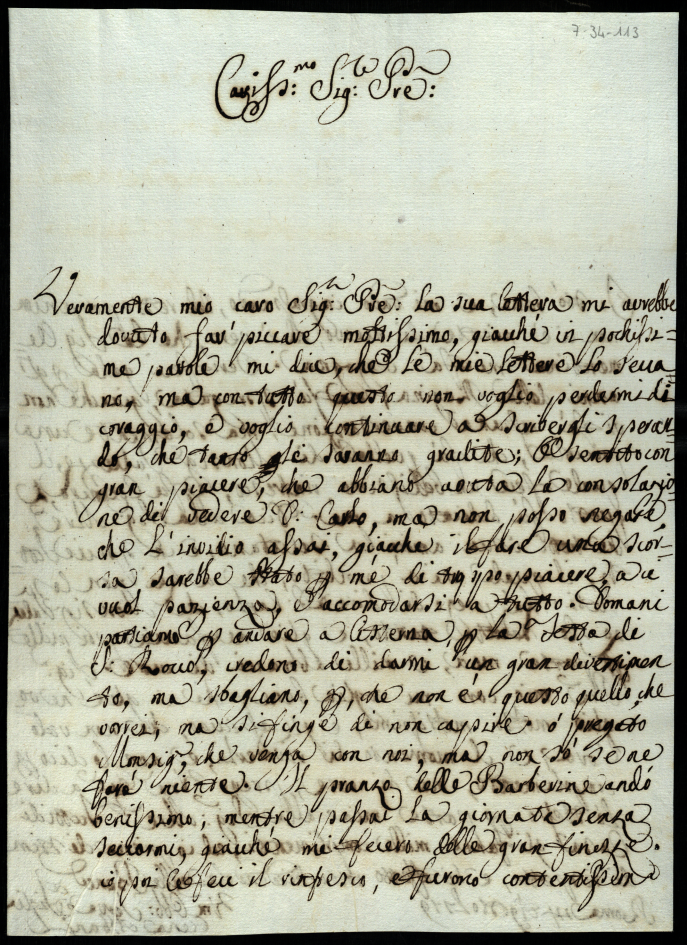 7-34-113
Cariss:mo Sig:re Pre:
Veramente mio caro Sig:r Pre: La sua lettera mi avrebbe
dovuto far piccare moltissimo, giacché in pochissi=
me parole mi dice, che Le mie Lettere Lo secca=
no, ma con tutto questo non voglio perdermi di
coraggio, e voglio continuare a scribergli speran=
do, che tanto gli saranno gradite; ò sentito con
gran piacere, che abbiano auuta La consolazio=
ne di vedere D: Carlo, ma non posso negare
che L'invidio assai, giacche il fare una scor=
sa sarebbe stato p mé di troppo piacere, a ci
vuol pazienza, e accomodarsi a tutto. Domani
partiamo p andare a Cesterna, p La festa di
S: Rocco, credono di darmi un gran divertimen
to, ma sbagliano, p, che non é questo quello, che
vorrei, ma si finge di non capire. ò pregato
Monsig:r, che venga con noi, ma non só se ne
fará niente. Il pranzo delle Barberine andó
benissimo, mentre passai La giornata senza
seccarmi, giacché mi fecero delle gran finezze.
io poi Le feci il rinfresco, e furono contentissem